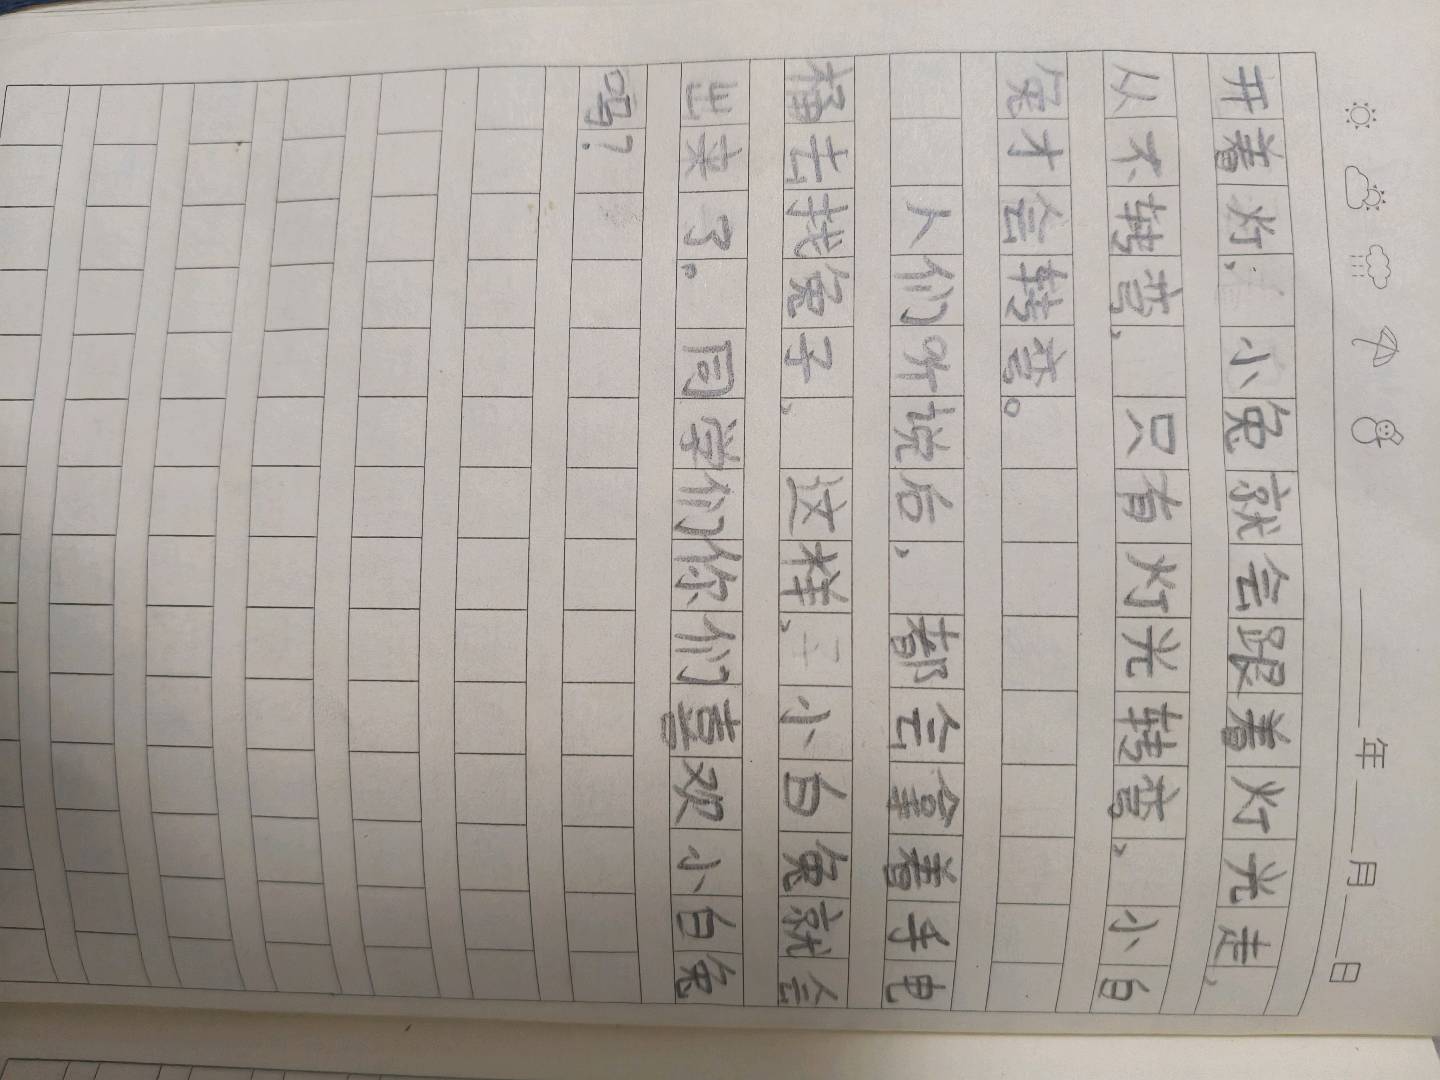 年 月 日
开着灯，小兔就会跟着灯光走，
从不转弯，只有灯光转弯，小白
兔才会转弯。
人们听说后，都会拿着手电
去找兔子，这样，小白兔就会
出来了。同学们你们喜欢小白兔
吗？